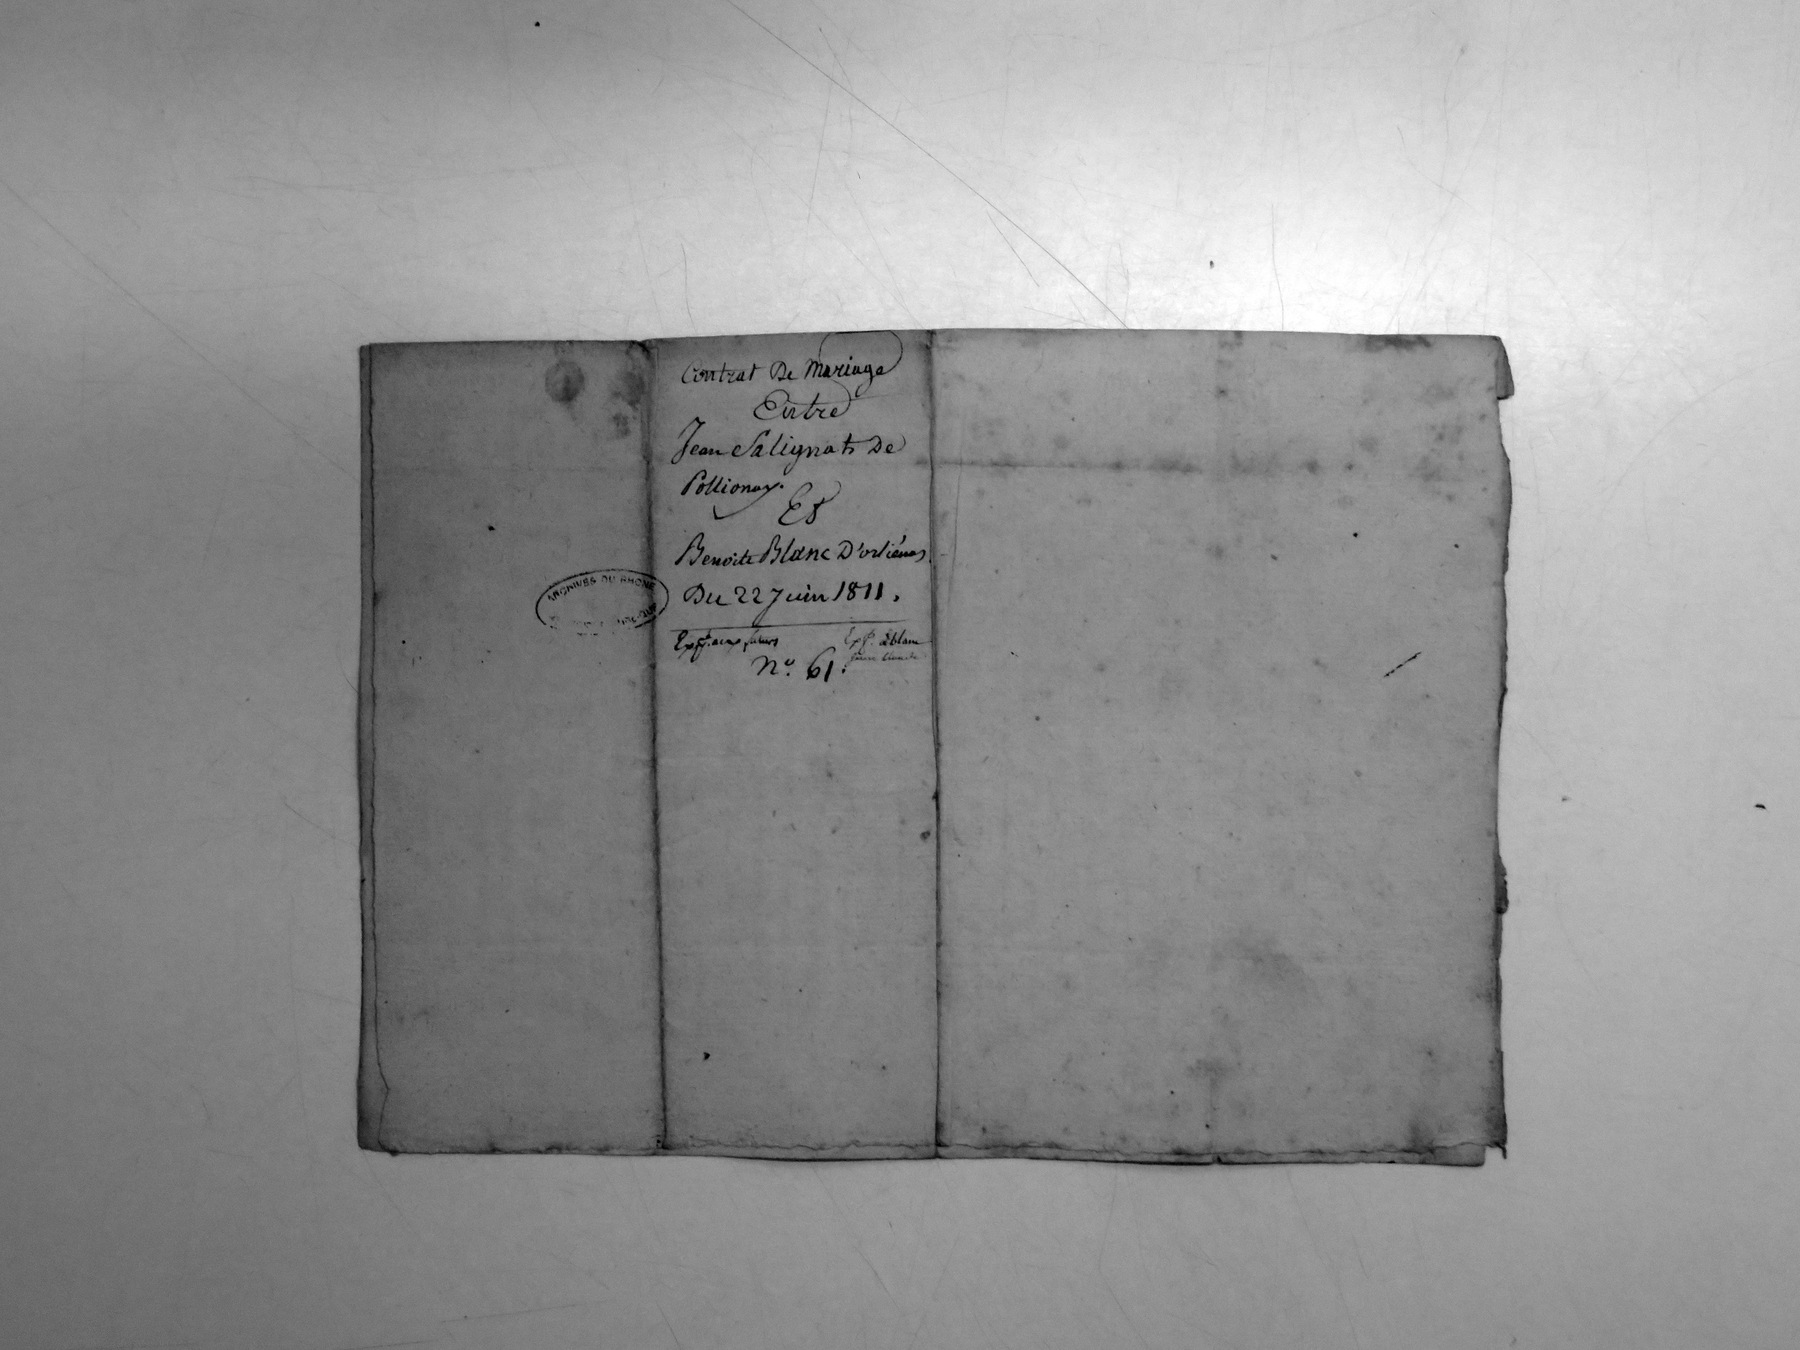 Contrat De Mariage
Entre
Jean Salignat De
Pollionay.
Et
Benoite Blanc D'orliénas
Du 22 Juin 1811.
Exp. aux futurs
Exp. à blanc
N°. 61.
ARCHIVES DU RHONE